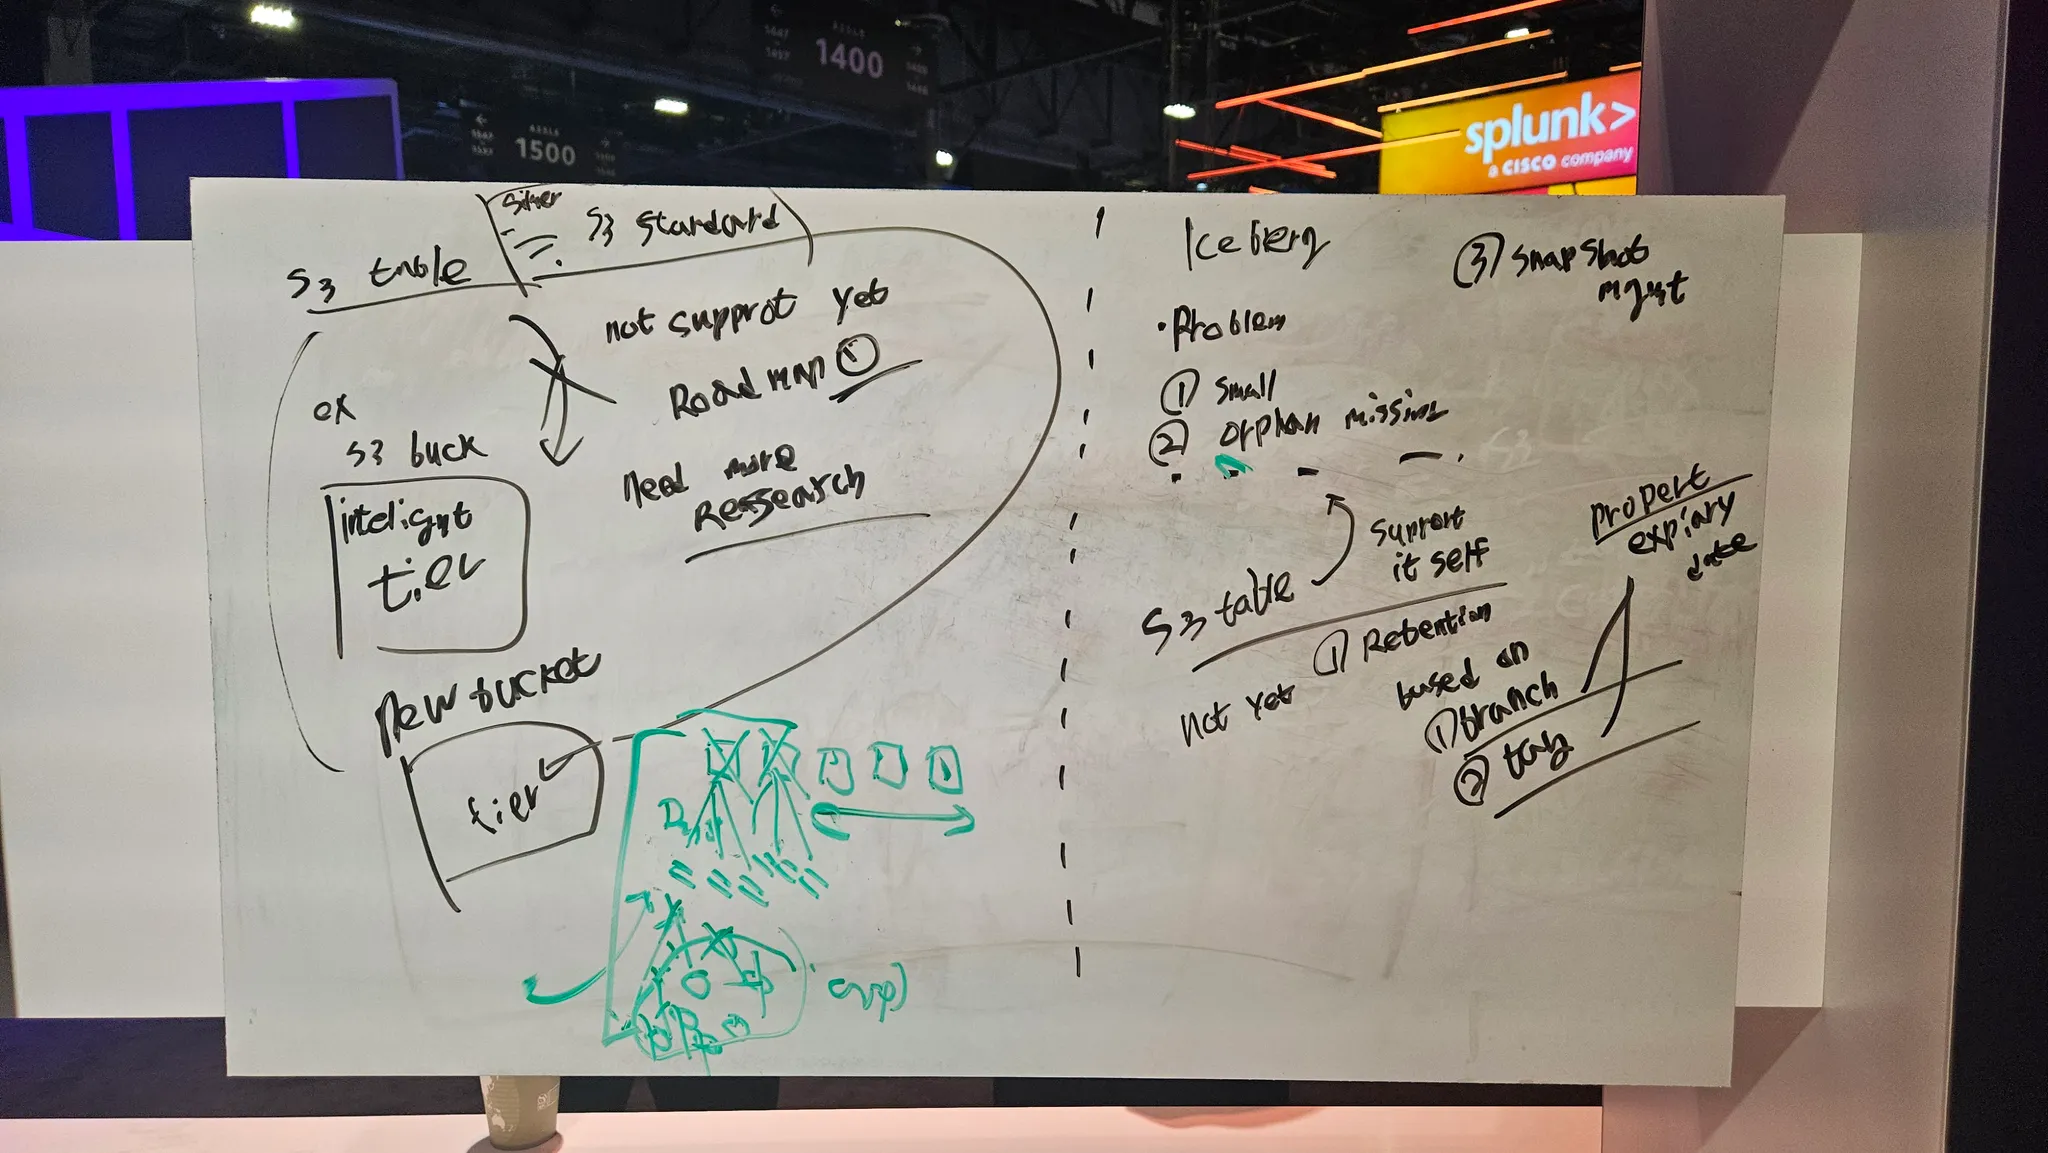 1400
AISLE
1500
splunk>
a CISCO company
S3 standard
S3 table
not supprot yet
Road map ①
ex
S3 buck
need more
Ressearch
intelignt
tier
new bucket
tier
Iceberg
③ snapshot
mgmt
• Problem
① small
② orphan missing
support
it self
S3 table
propert
expiary
date
① Retention
based on
not yet
① branch
② tag